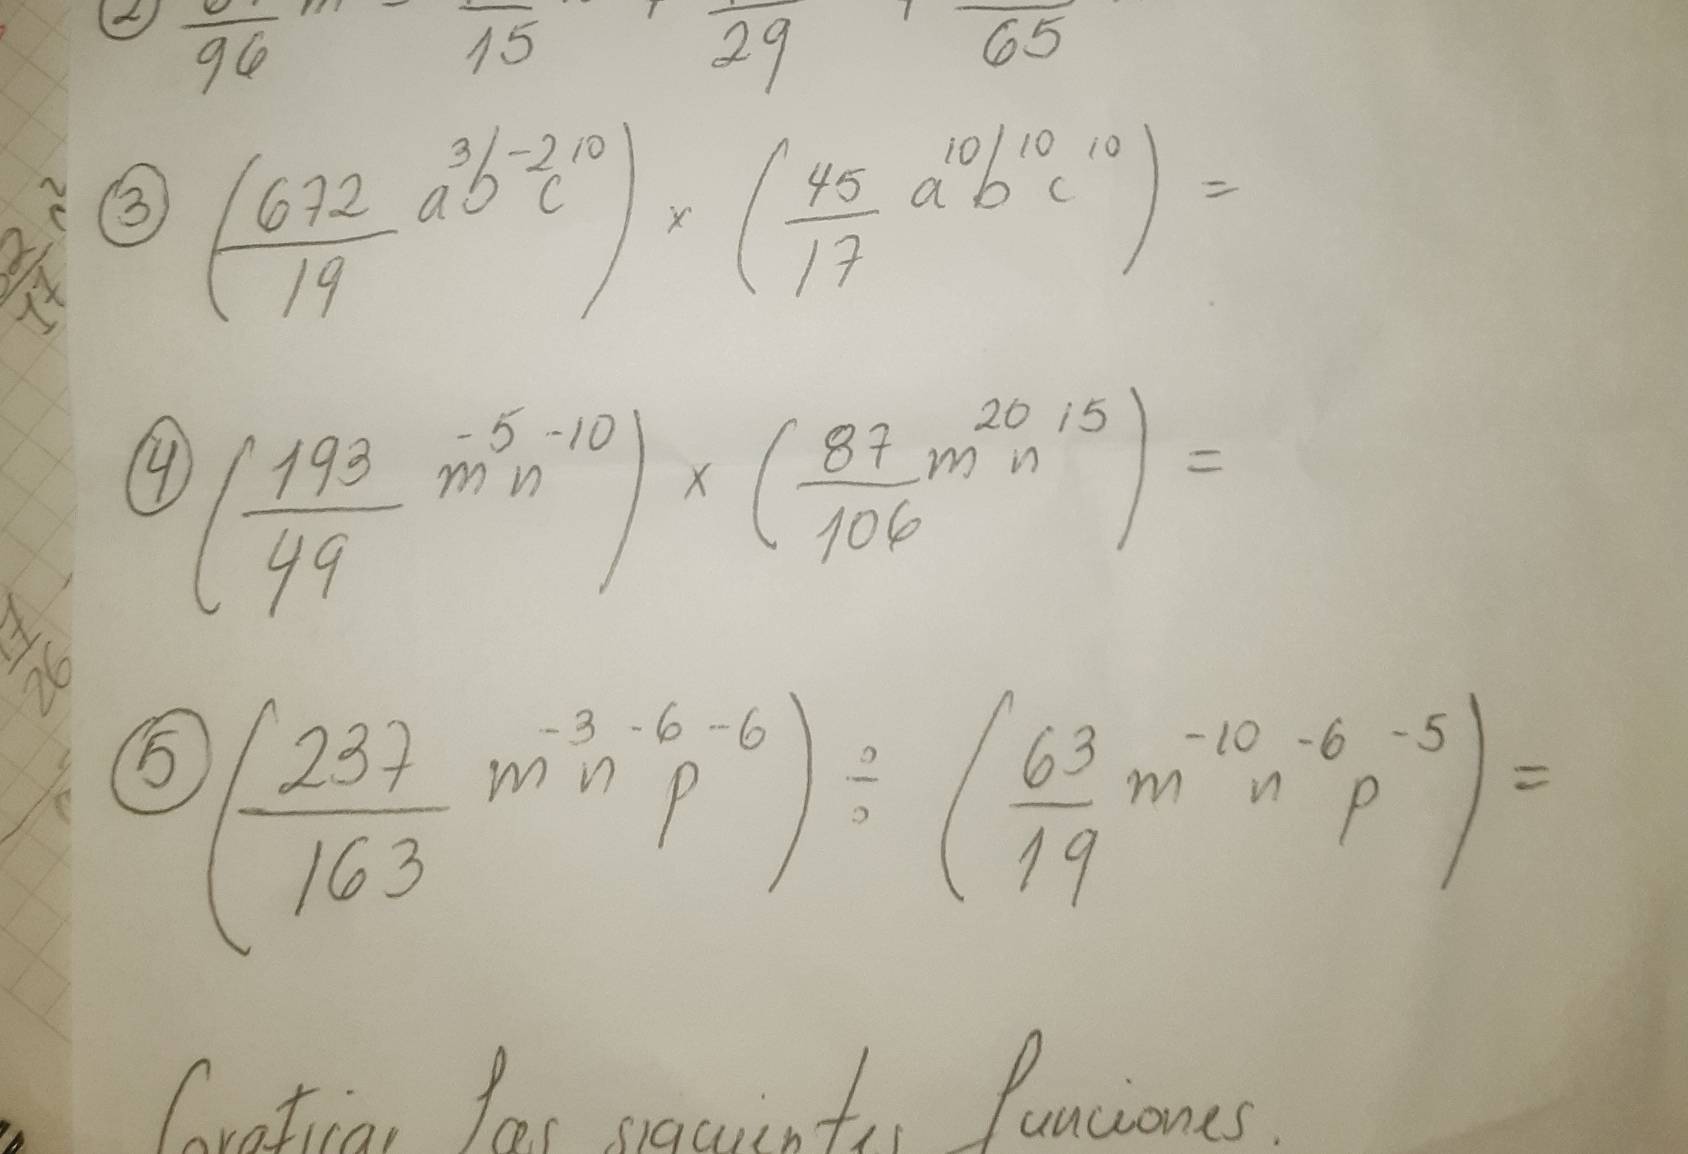 96 15 29 65
③ (672/19 a³b⁻²c¹⁰) x (45/17 a¹⁰b¹⁰c¹⁰) =
④ (193/49 m⁻⁵n⁻¹⁰) x (87/106 m²⁰n¹⁵) =
⑤ (237/163 m⁻³n⁻⁶p⁻⁶) ÷ (63/19 m⁻¹⁰n⁻⁶p⁻⁵) =
Graficar las siguientes funciones.